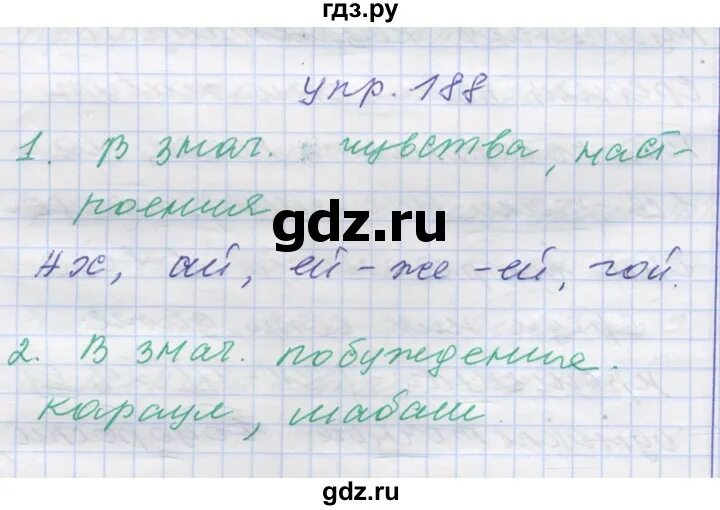 гдз.ру
упр. 188
1. В знач. чувства, наст-
роения
gdz.ru
Ах, ай, ей-же-ей, гой.
2. В знач. побуждение.
караул, шабаш
gdz.ru